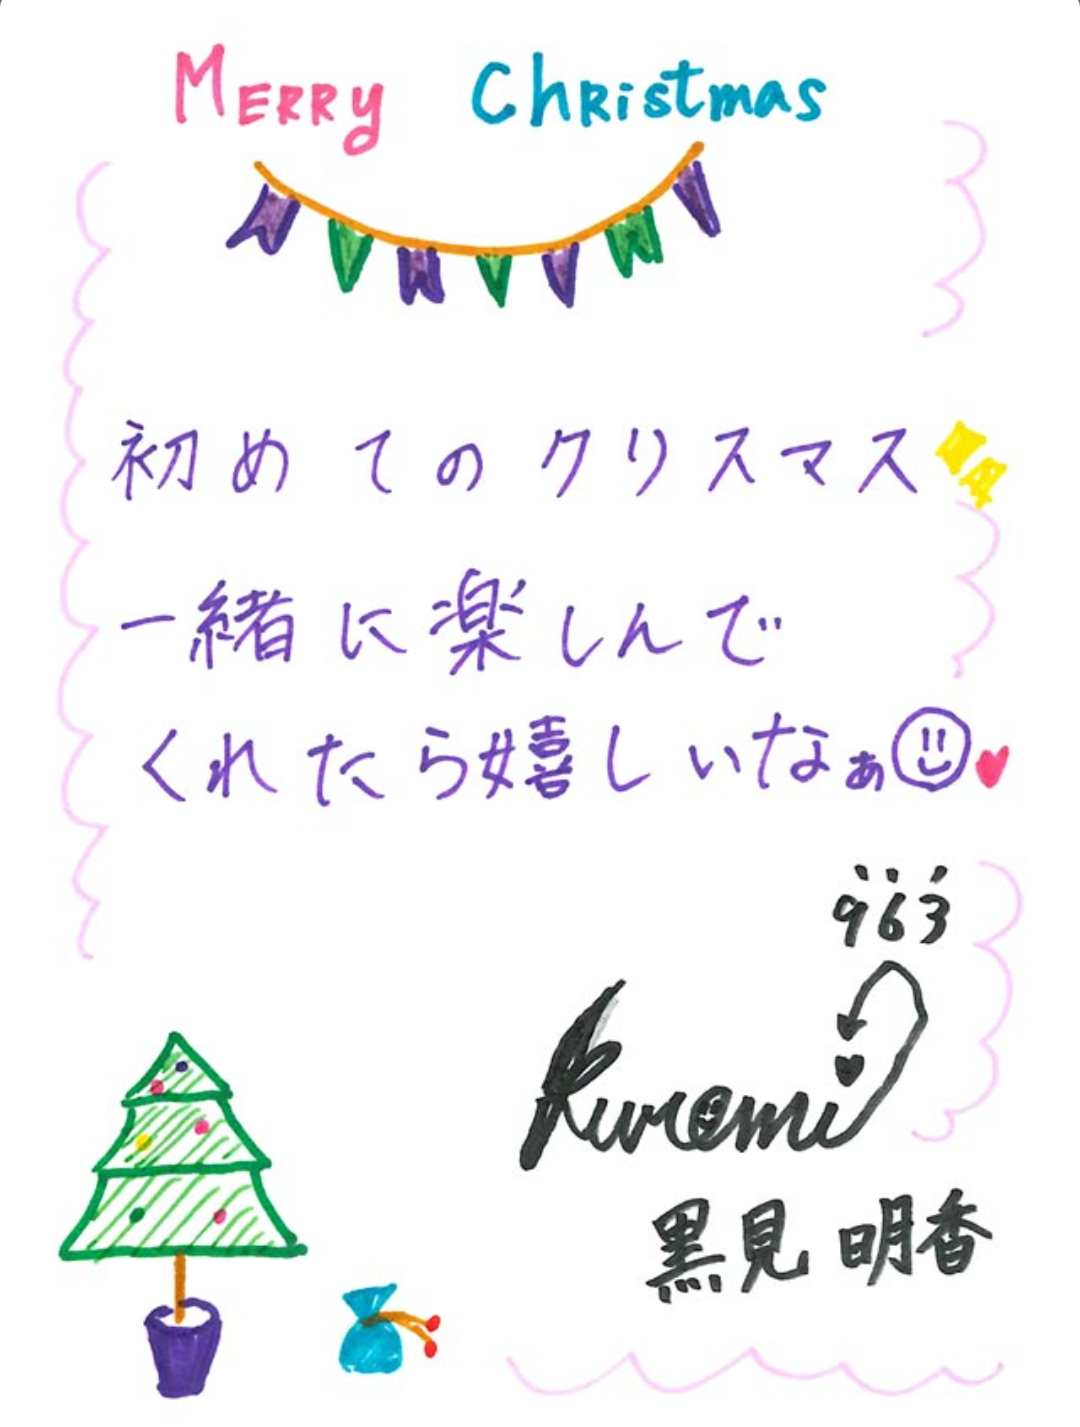 Merry Christmas
初めてのクリスマス
一緒に楽しんで
くれたら嬉しいなぁ
963
Kuromi
黒見 明香